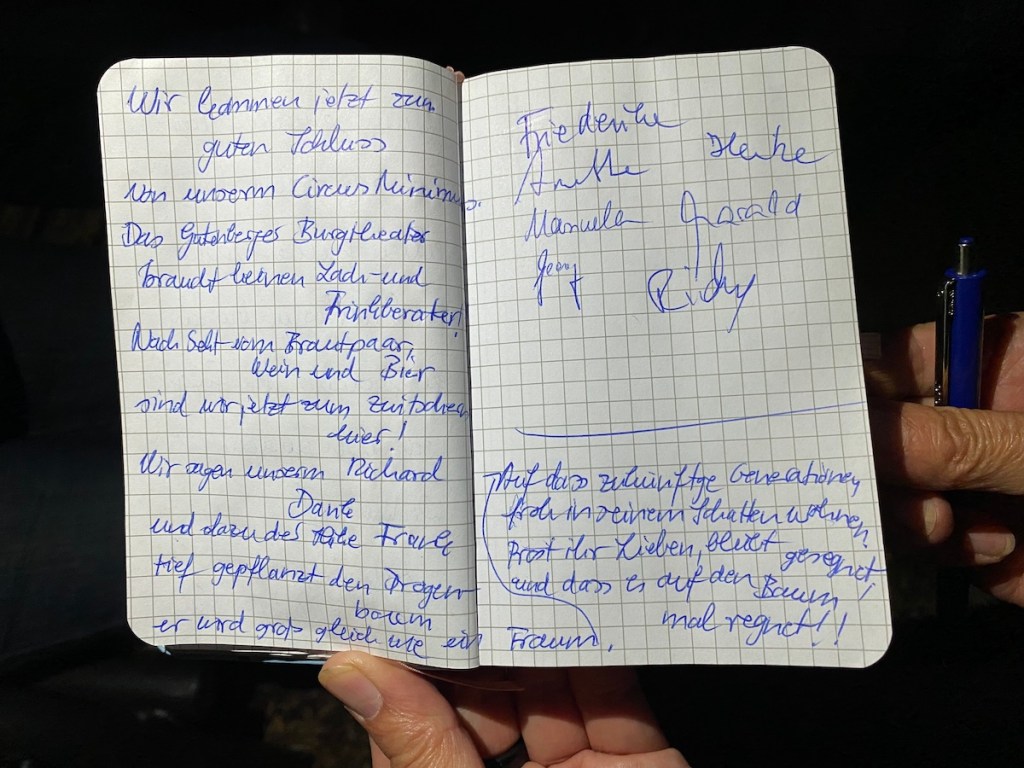 Wir kommen jetzt zum
guten Schluss
von unserm Circus Minimus.
Das Gutenberges Burgtheater
braucht keinen Lach- und
Trinkberater!
Nach Sekt vom Brautpaar,
Wein und Bier
sind wir jetzt zum zwitschern
hier!
Wir sagen unserm Richard
Danke
und dazu des Frank
tief gepflanzt den Dragen
baum
er wird groß gleich wie ein
Traum,
Friederike
Anette Heike
Manuela Harald
Georg
Auf dass zukünftge Generationen
froh in seinem Schatten wohnen
Prost ihr Lieben, bleibt gesegnet!
und dass es auf den Baum
mal regnet!!